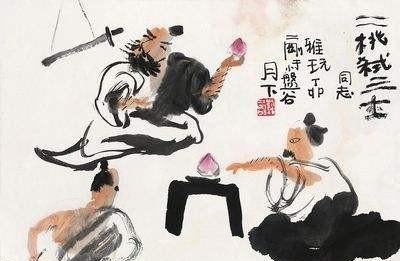 二桃弑三士
同志
雅玩丁卯
于小盘谷
月下